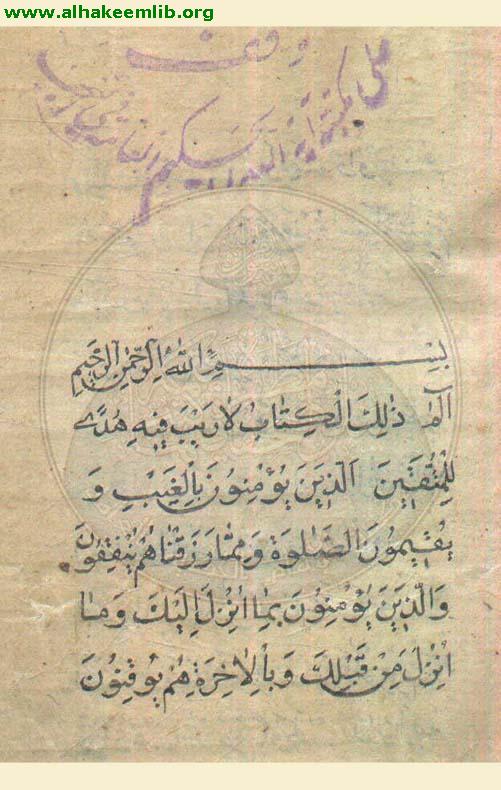 www.alhakeemlib.org
وقف
على مكتبة آية الله الحكيم العامة في
بِسْمِ اللهِ الرَّحْمٰنِ الرَّحِيمِ
الم ذٰلِكَ الْكِتٰابُ لاٰ رَيْبَ فِيهِ هُدًى
لِلْمُتَّقِينَ الَّذِينَ يُؤْمِنُونَ بِالْغَيْبِ وَ
يُقِيمُونَ الصَّلٰوةَ وَمِمّٰا رَزَقْنٰاهُمْ يُنْفِقُونَ
وَالَّذِينَ يُؤْمِنُونَ بِمٰا اُنْزِلَ اِلَيْكَ وَمٰا
اُنْزِلَ مِنْ قَبْلِكَ وَبِالْاٰخِرَةِ هُمْ يُوقِنُونَ